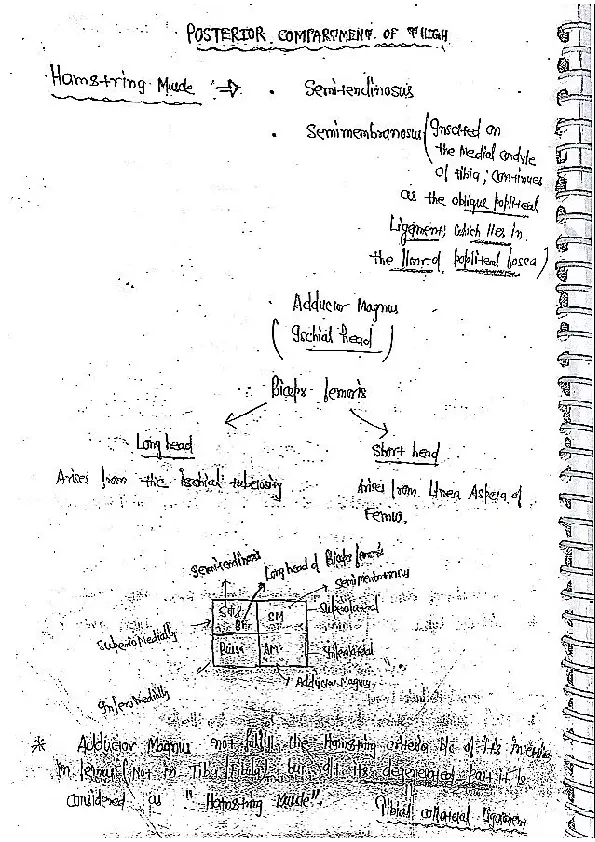 POSTERIOR COMPARMENT OF THIGH
Hamstring Muscle ⇒ • Semitendinosus
• Semimembranosus (Inserted on
the Medial condyle
of tibia; continues
as the oblique popliteal
Ligament; which lies in
the floor of popliteal fossa)
Adductor Magnus
(Ischial head)
Biceps femoris
Long head
Short head
Arises from the ischial tuberosity
Arises from Linea Aspera of
Femur.
Semitendinosus
Long head of Biceps femoris
Semimembranosus
BF SM
Superolateral
Superomedially
AM
Inferolateral
Inferomedially
Adductor Magnus
* Adductor Magnus not fulfill the Hamstring criteria b/c of its
in femur (not in Tibia/fibula), but its degenerated part is
considered as "Hamstring Muscle".
Tibial collateral ligament